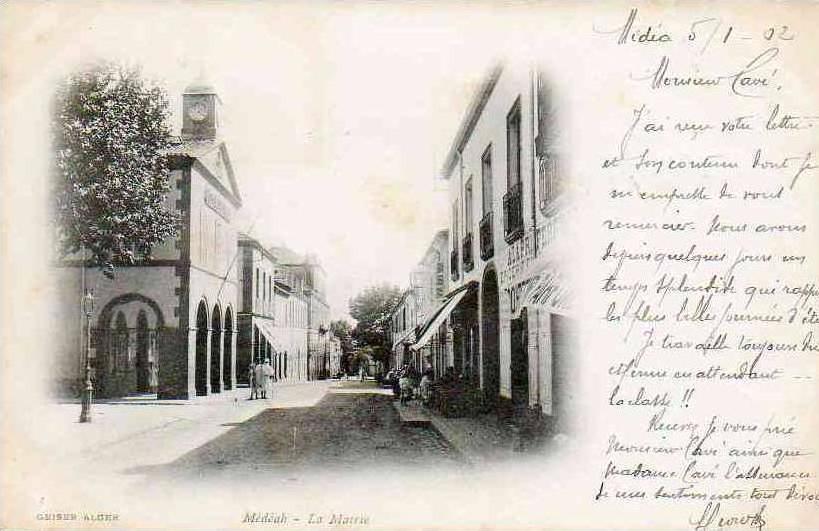 Médéa 5/1-02
Monsieur Cavé,
J'ai reçu votre lettre
et son contenu dont je
m'empresse de vous
remercier. Nous avons
depuis quelques jours un
temps splendide qui rapp
les plus belles journées d'été
Je travaille toujours
et ferme en attendant ...
la classe !!
Recevez je vous prie
Monsieur Cavé ainsi que
Madame Cavé l'assurance
de mes sentiments tout dévou
GEISER ALGER
Médéah - La Mairie